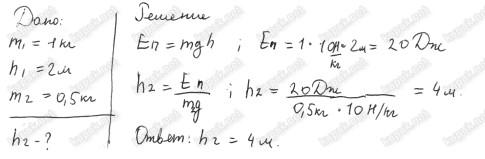 Дано:
m₁ = 1 кг
h₁ = 2 м
m₂ = 0,5 кг
h₂ - ?
Решение
Eп = mgh ; Eп = 1 · 10 Н/кг · 2 м = 20 Дж
h₂ = Eп/mg ; h₂ = 20 Дж/0,5 кг · 10 Н/кг = 4 м.
Ответ: h₂ = 4 м.